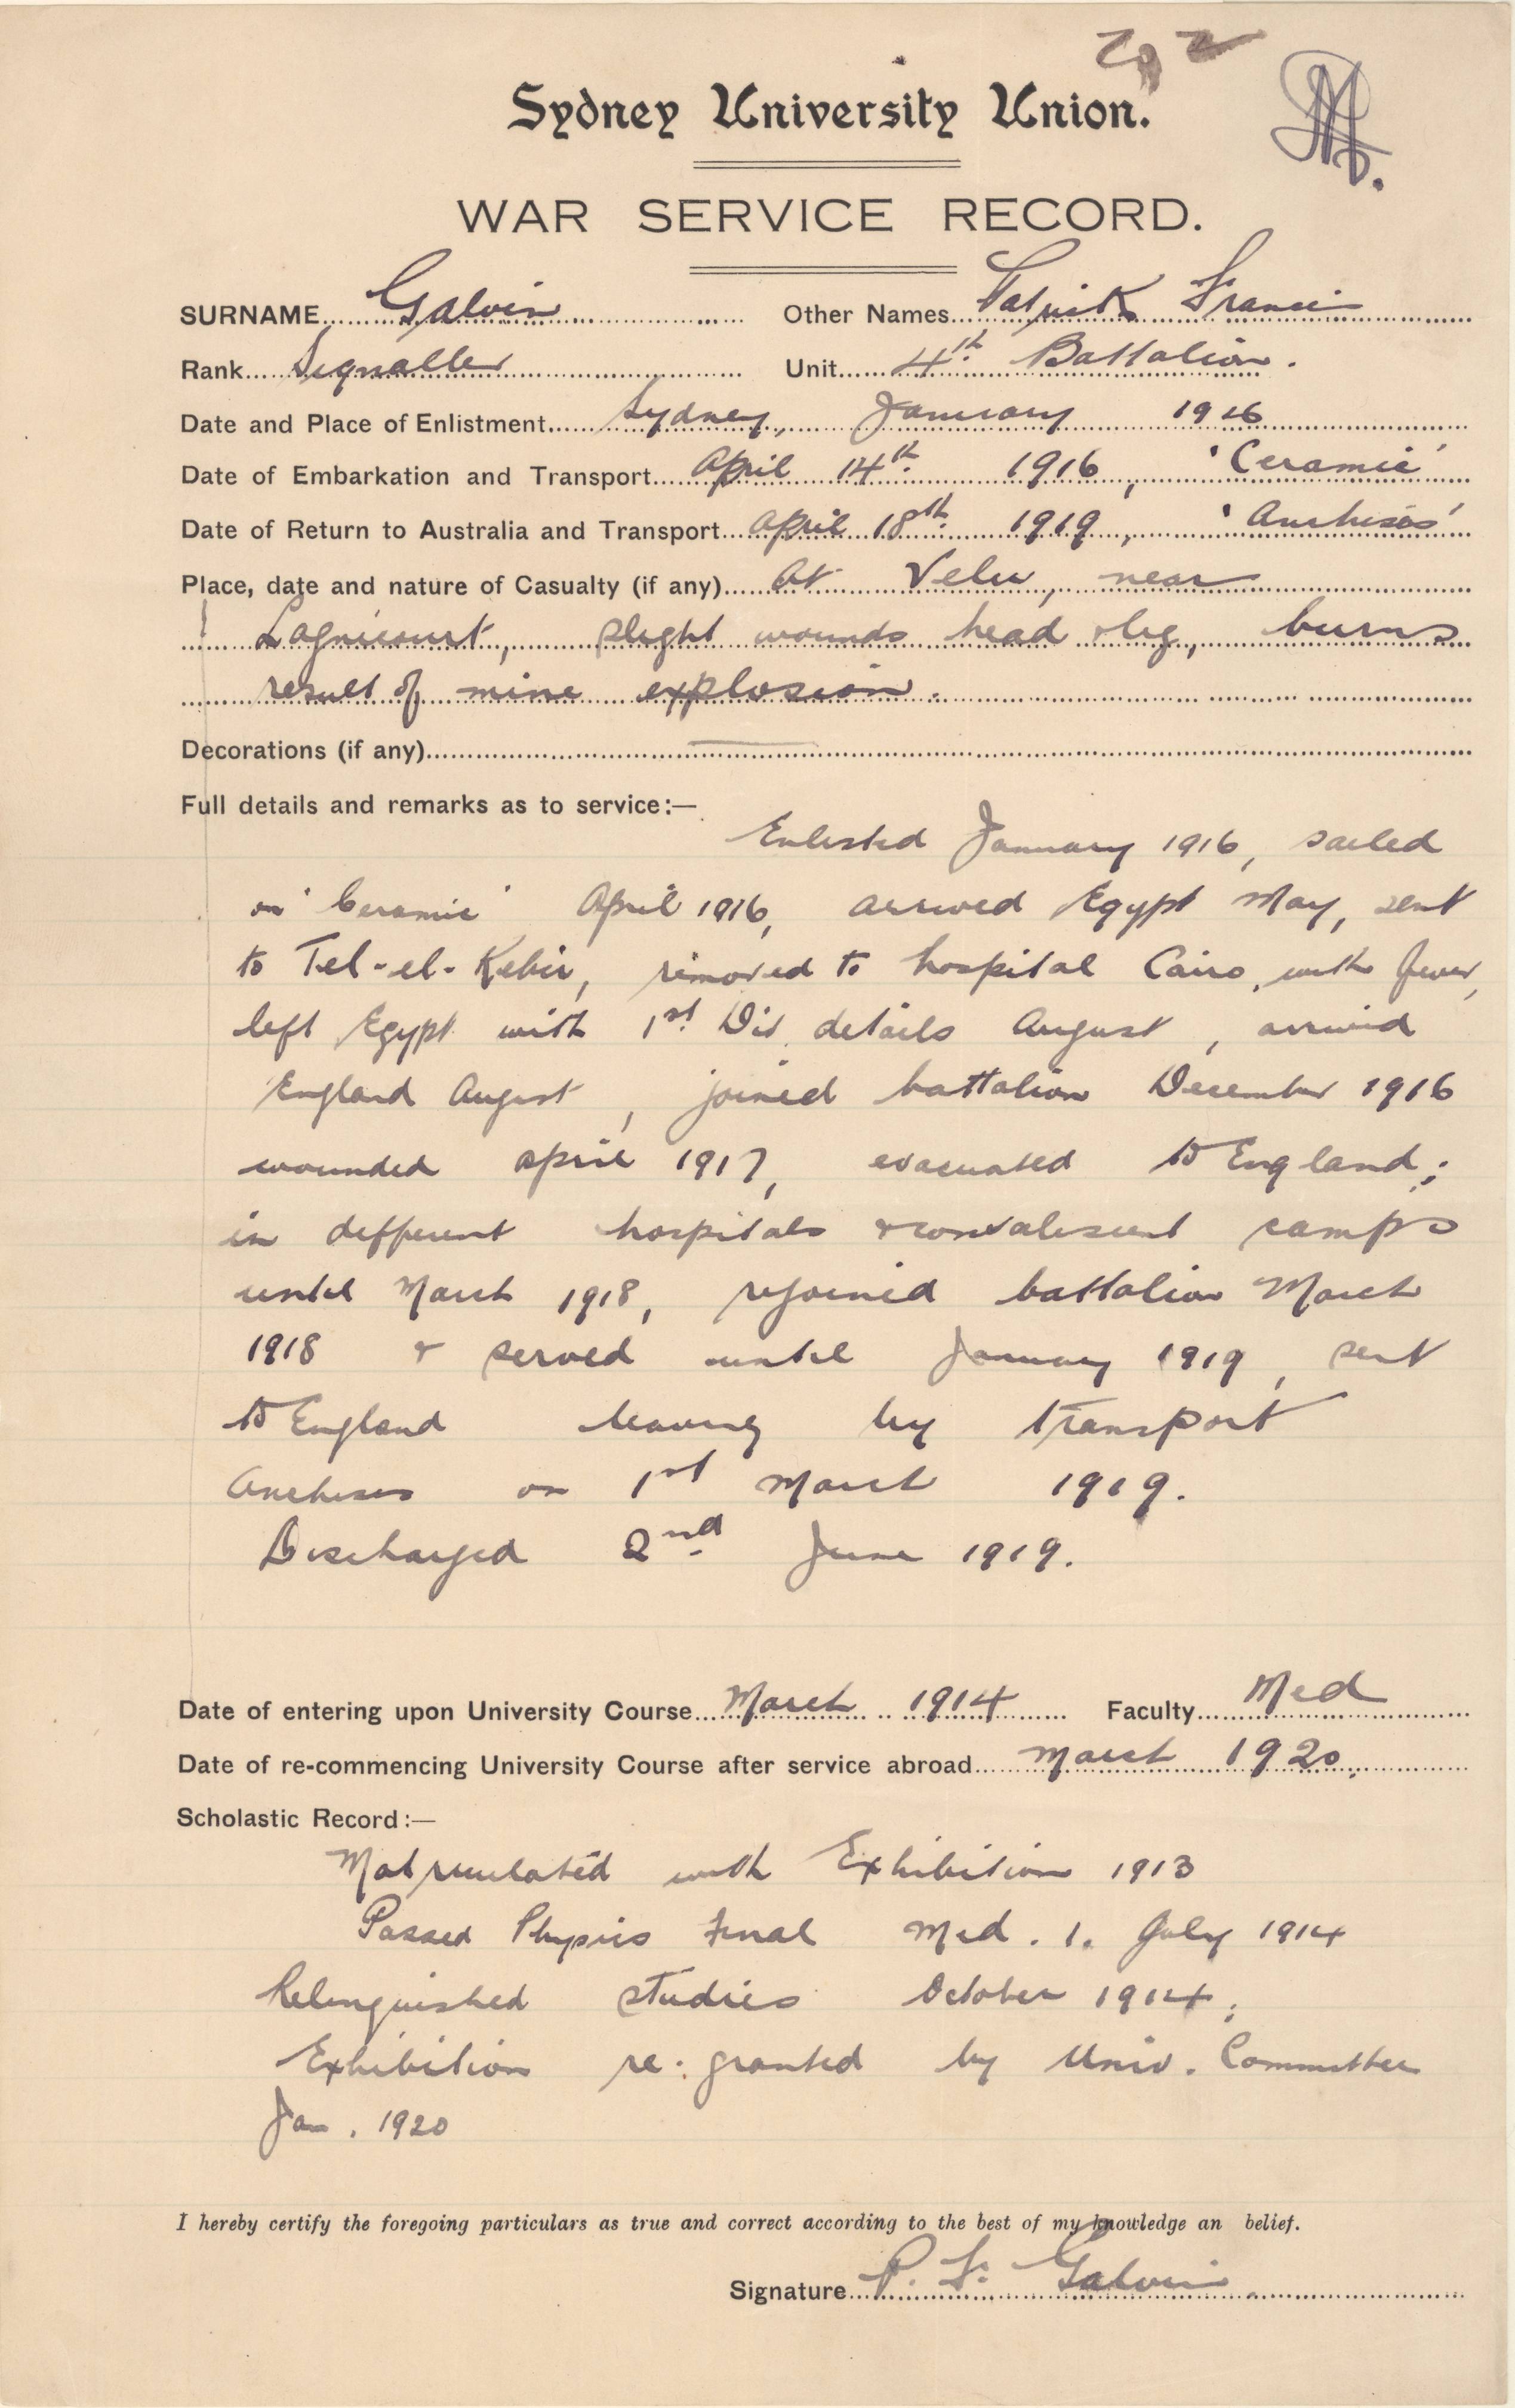 Sydney University Union.
WAR SERVICE RECORD.
SURNAME Galvin Other Names Patrick Francis
Rank Signaller Unit 4th Battalion.
Date and Place of Enlistment Sydney, January 1916
Date of Embarkation and Transport April 14th 1916, 'Ceramic'
Date of Return to Australia and Transport April 18th 1919, 'Anchises'
Place, date and nature of Casualty (if any) At Velu, near
Lagnicourt, slight wounds head & leg, burns
result of mine explosion.
Decorations (if any)
Full details and remarks as to service:—
Enlisted January 1916, sailed
on 'Ceramic' April 1916, arrived Egypt May, sent
to Tel-el-Kebir, removed to hospital Cairo, with fever,
left Egypt with 1st Div. details August, arrived
England August, joined battalion December 1916
wounded april 1917, evacuated to England;
in different hospitals & convalescent camps
until March 1918, rejoined battalion March
1918 & served until January 1919, sent
to England leaving by transport
Anchises on 1st March 1919.
Discharged 2nd June 1919.
Date of entering upon University Course March 1914 Faculty Med
Date of re-commencing University Course after service abroad March 1920.
Scholastic Record:—
Matriculated with Exhibition 1913
Passed Physics Final Med. 1. July 1914
Relinquished studies October 1914;
Exhibition re:granted by Univ. Committee
Jan. 1920
I hereby certify the foregoing particulars as true and correct according to the best of my knowledge an belief.
Signature P. F. Galvin